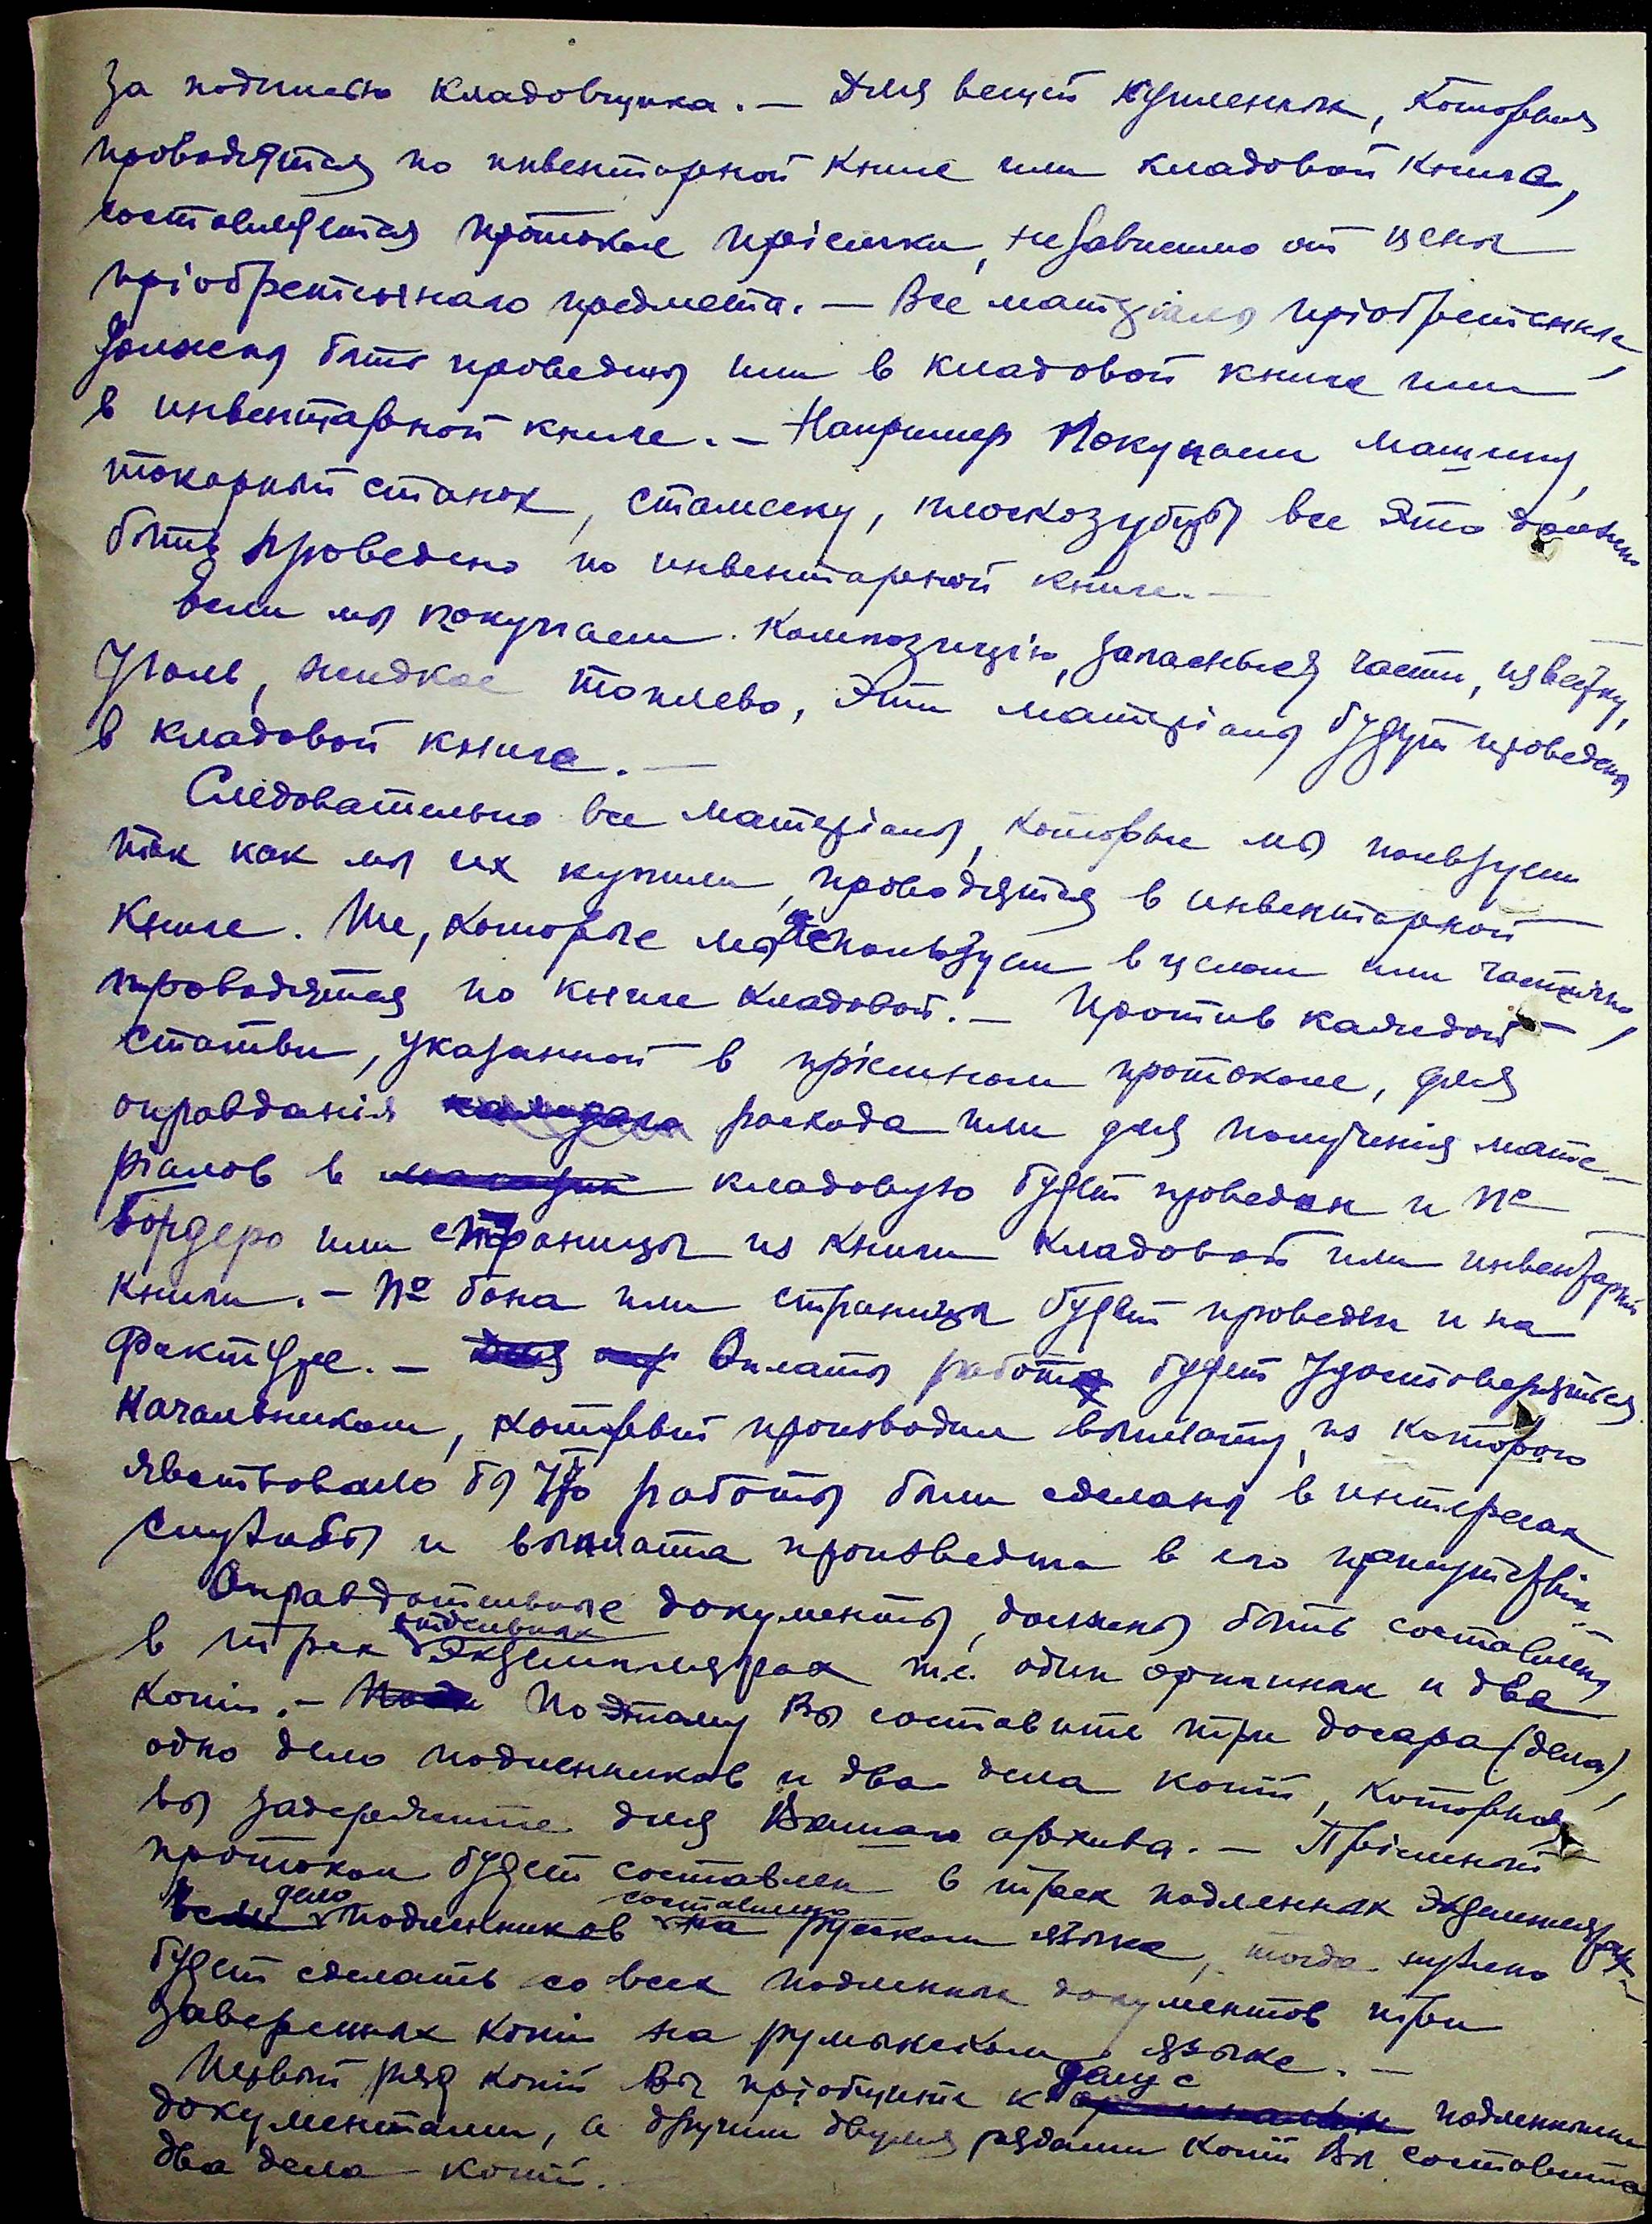 За подписью кладовщика. — Для вещей купленных, которыя
проводятся по инвентарной книге или кладовой книге,
составляется протокол пріемки, независимо от цены
пріобретеннаго предмета. — Все матеріалы пріобретенные,
должны быть проведены или в кладовой книге или
в инвентарной книге. — Например Покупаем машину,
токарный станок, стамеску, плоскозубцы все это должно
быть проведено по инвентарной книге. —
Если мы покупаем композицію, запасныя части, известку,
Уголь, жидкое топлево, Эти матеріалы будут проведены
в кладовой книге. —
Следовательно все матеріалы, которые мы пользуем
так как мы их купили, проводятся в инвентарной
книге. Те, которые мы используем в целом или частично,
проводятся по книге кладовой. — Против каждой
статьи, указанной в пріемном протоколе, для
оправданія каждаго расхода или для полученія мате-
ріалов в магазин кладовую будет проведен и №
бордеро или страницы из книги кладовой или инвентарной
книги. — № бона или страницы будет проведен и на
фактуре. — Для Оплаты работы будет удостоверяться
Начальником, который производил выплату, из которого
явствовало бы что работы были сделаны в интересах
службы и выплата произведена в его присутствіи. —
Оправдательные документы, должны быть составлены
в трех отдельных Экземплярах т.е. один оригинал и два
копіи. — Поэтому Вы составите три досара (дела),
одно дело подленников и два дела копій, которыя
вы задержите для Вашего архива. — Пріемный
протокол будет составлен в трех подленных экземплярах. —
Если дело подленников составлено на руском языке, тогда нужно
будет сделать со всех подленных документов три
заверенных копіи на румынском языке. —
Первый ряд копій Вы пріобщите к делу с подленными
документами, а другими двумя рядами копій Вы составите
два дела копій. —